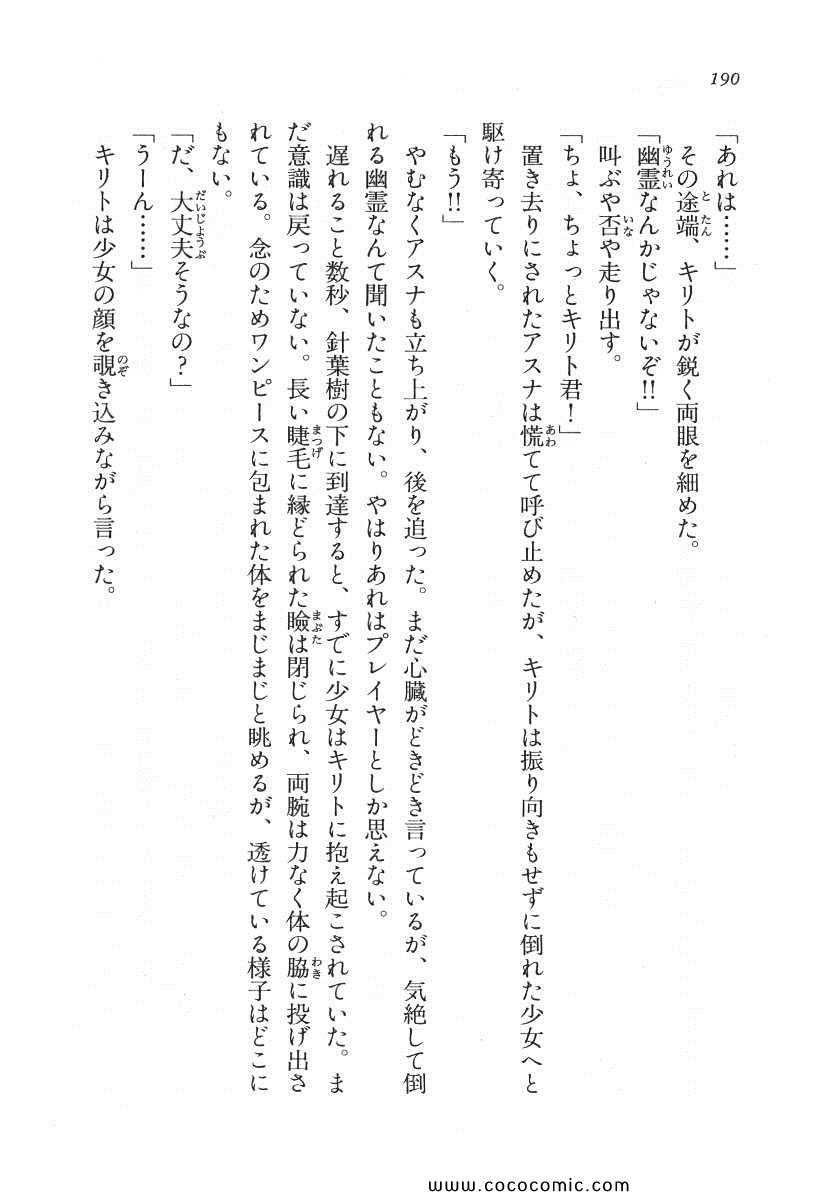 190
「あれは……」
その途端、キリトが鋭く両眼を細めた。
「幽霊なんかじゃないぞ!!」
叫ぶや否や走り出す。
「ちょ、ちょっとキリト君！」
置き去りにされたアスナは慌てて呼び止めたが、キリトは振り向きもせずに倒れた少女へと
駆け寄っていく。
「もう!!」
やむなくアスナも立ち上がり、後を追った。まだ心臓がどきどき言っているが、気絶して倒
れる幽霊なんて聞いたこともない。やはりあれはプレイヤーとしか思えない。
遅れること数秒、針葉樹の下に到達すると、すでに少女はキリトに抱え起こされていた。ま
だ意識は戻っていない。長い睫毛に縁どられた瞼は閉じられ、両腕は力なく体の脇に投げ出さ
れている。念のためワンピースに包まれた体をまじまじと眺めるが、透けている様子はどこに
もない。
「だ、大丈夫そうなの？」
「うーん……」
キリトは少女の顔を覗き込みながら言った。
www.cococomic.com